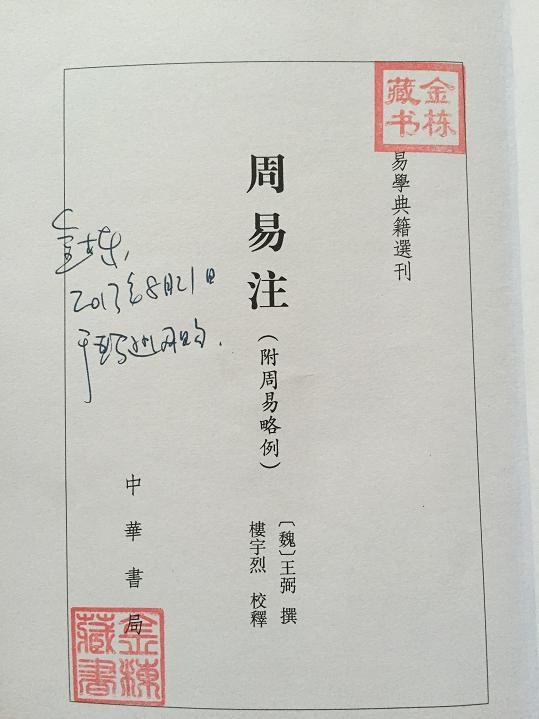 金栋
藏书
易學典籍選刊
周易注
(附周易略例)
〔魏〕王弼 撰
樓宇烈 校釋
中華書局
金栋,
2013年8月21日
金棟
藏書